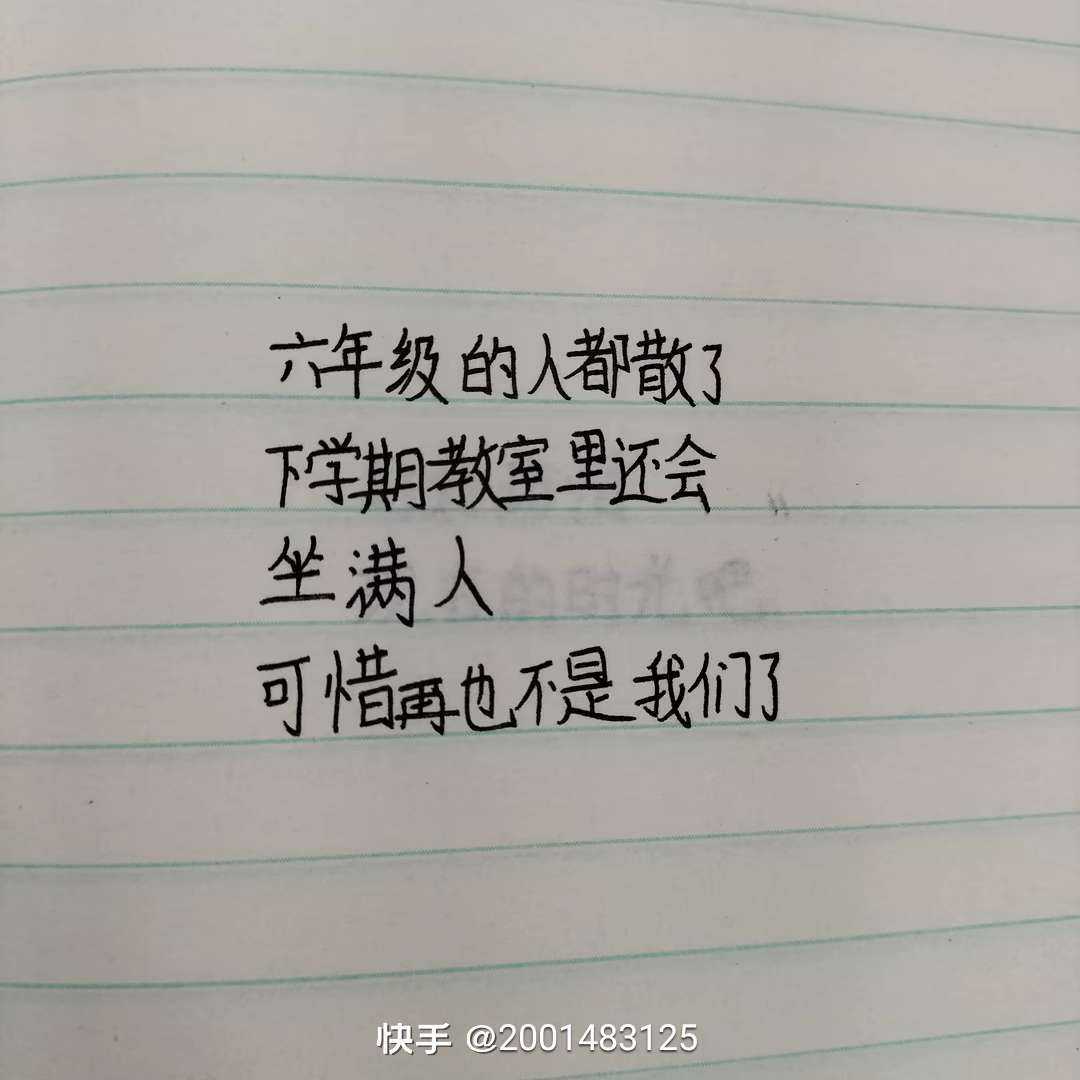 六年级的人都散了
下学期教室里还会
坐满人
可惜再也不是我们了
快手 @2001483125